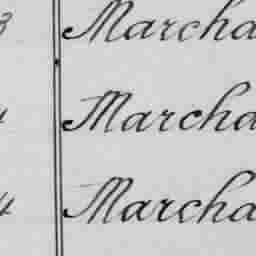 3 Marcha
4 Marcha
4 Marcha